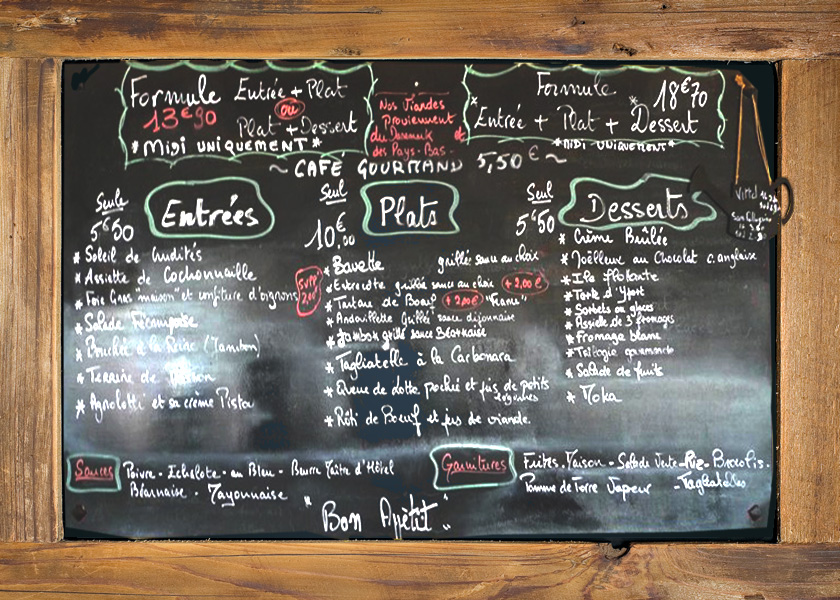 Formule Entrée + Plat
13€90 ou
Plat + Dessert
*Midi UNIQUEMENT*
Nos Viandes
Proviennent
du Danemark et
des Pays-Bas-
Formule 18€70
*Entrée + Plat + Dessert*
*MIDI UNIQUEMENT*
~ CAFÉ GOURMAND 5,50€ ~
Seule
5€50
Entrées
* Soleil de Crudités
* Assiette de Cochonnaille
* Foie Gras "maison" et confiture d'oignons
SUPP 2,00€
* Salade Fécampoise
* Bouchée à la Reine (Jambon)
* Terrine de
* Agnolotti et sa crème Pistou
Seul
10€,00
Plats
* Bavette grillée sauce au choix
* Entrecote grillée sauce au choix +2,00€
* Tartare de Boeuf +2,00€
* Andouillette Grillée sauce dijonnaise
* Jambon grillé sauce Béarnaise
* Tagliatelle à la Carbonara
* Queue de Lotte poché et jus de petits
légumes
* Rôti de Boeuf et jus de viande.
Seul
5€50
Desserts
* Crème Brûlée
* Moëlleux au Chocolat c.anglaise
* Ile flotante
* Tarte d'Yport
* Sorbets ou glaces
* Assiette de 3 fromages
* Fromage blanc
* Trilogie gourmande
* Salade de fruits
* Moka
Vittel
San Pellegrino
Sauces Poivre - Echalote - au Bleu - Beurre Maître d'Hôtel
Béarnaise - Mayonnaise
Garnitures Frites Maison - Salade Verte - Riz - Brocolis -
Pomme de Terre Vapeur - Tagliatelles
"Bon Appétit"